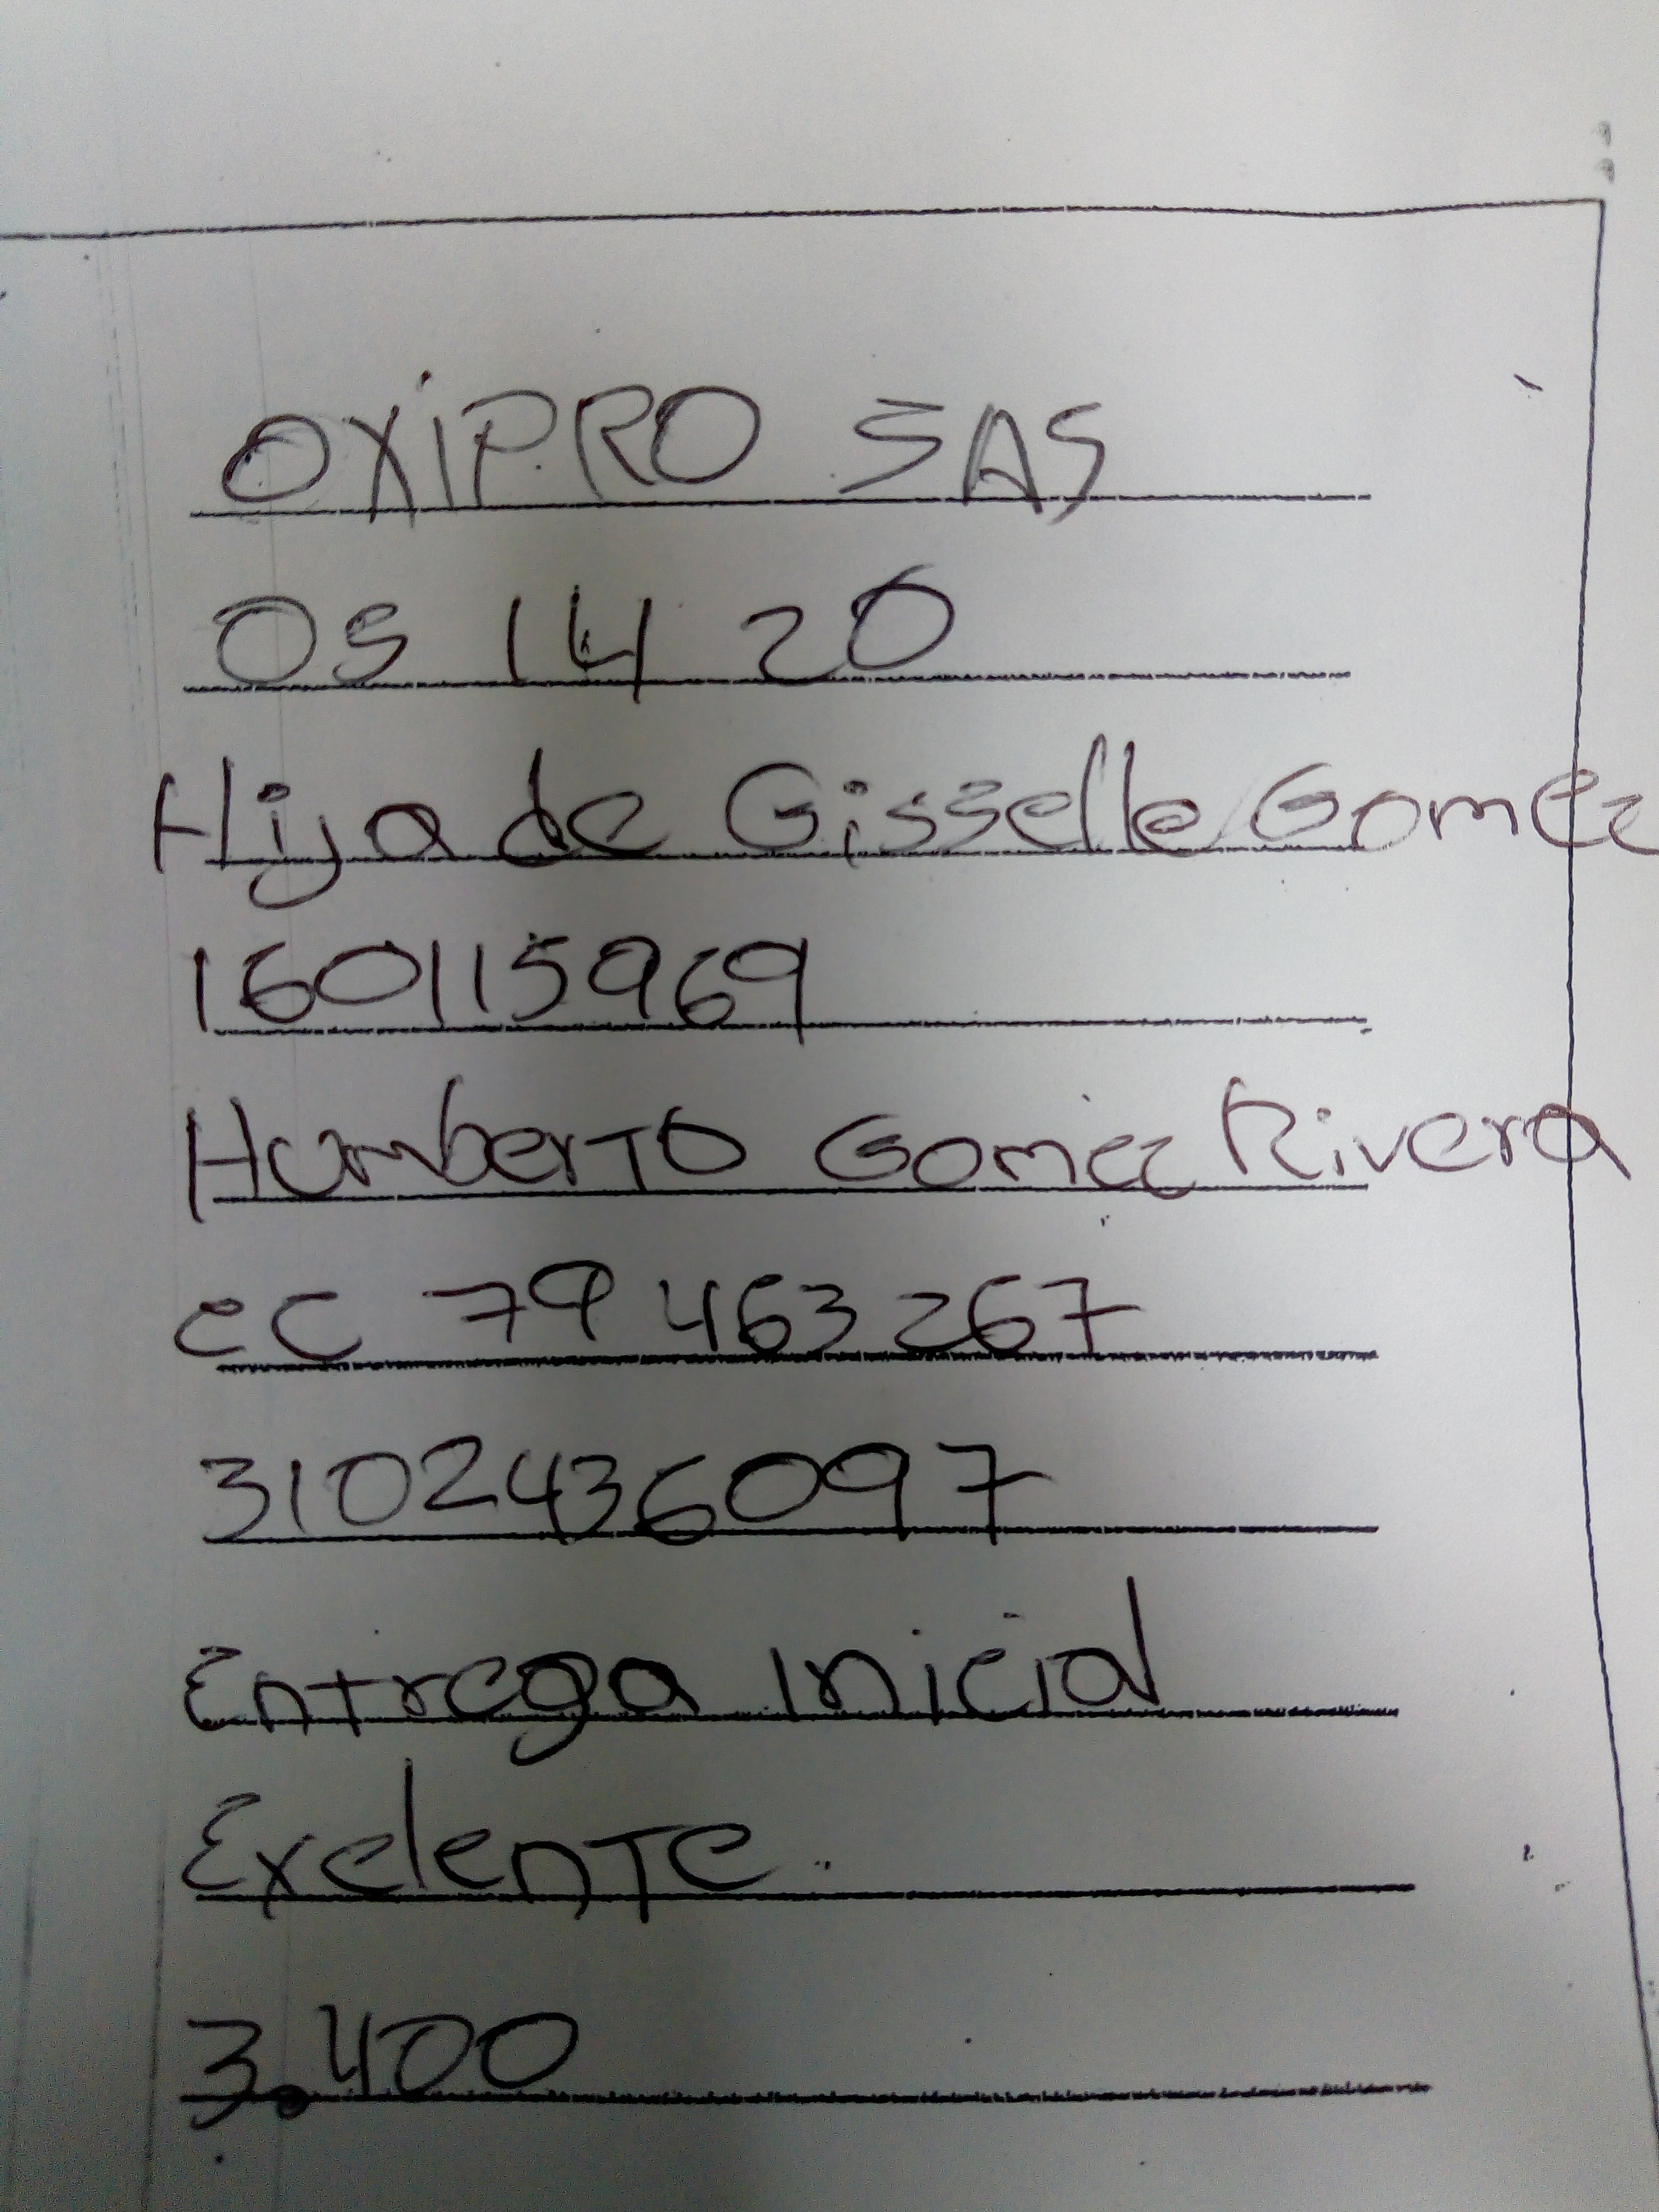 OXiPRO SAS
05 14 20
Hija de Gisselle Gomez
160115969
Humberto Gomez Rivera
CC 79 463 267
3102436097
Entrega inicial
Exelente
3.400